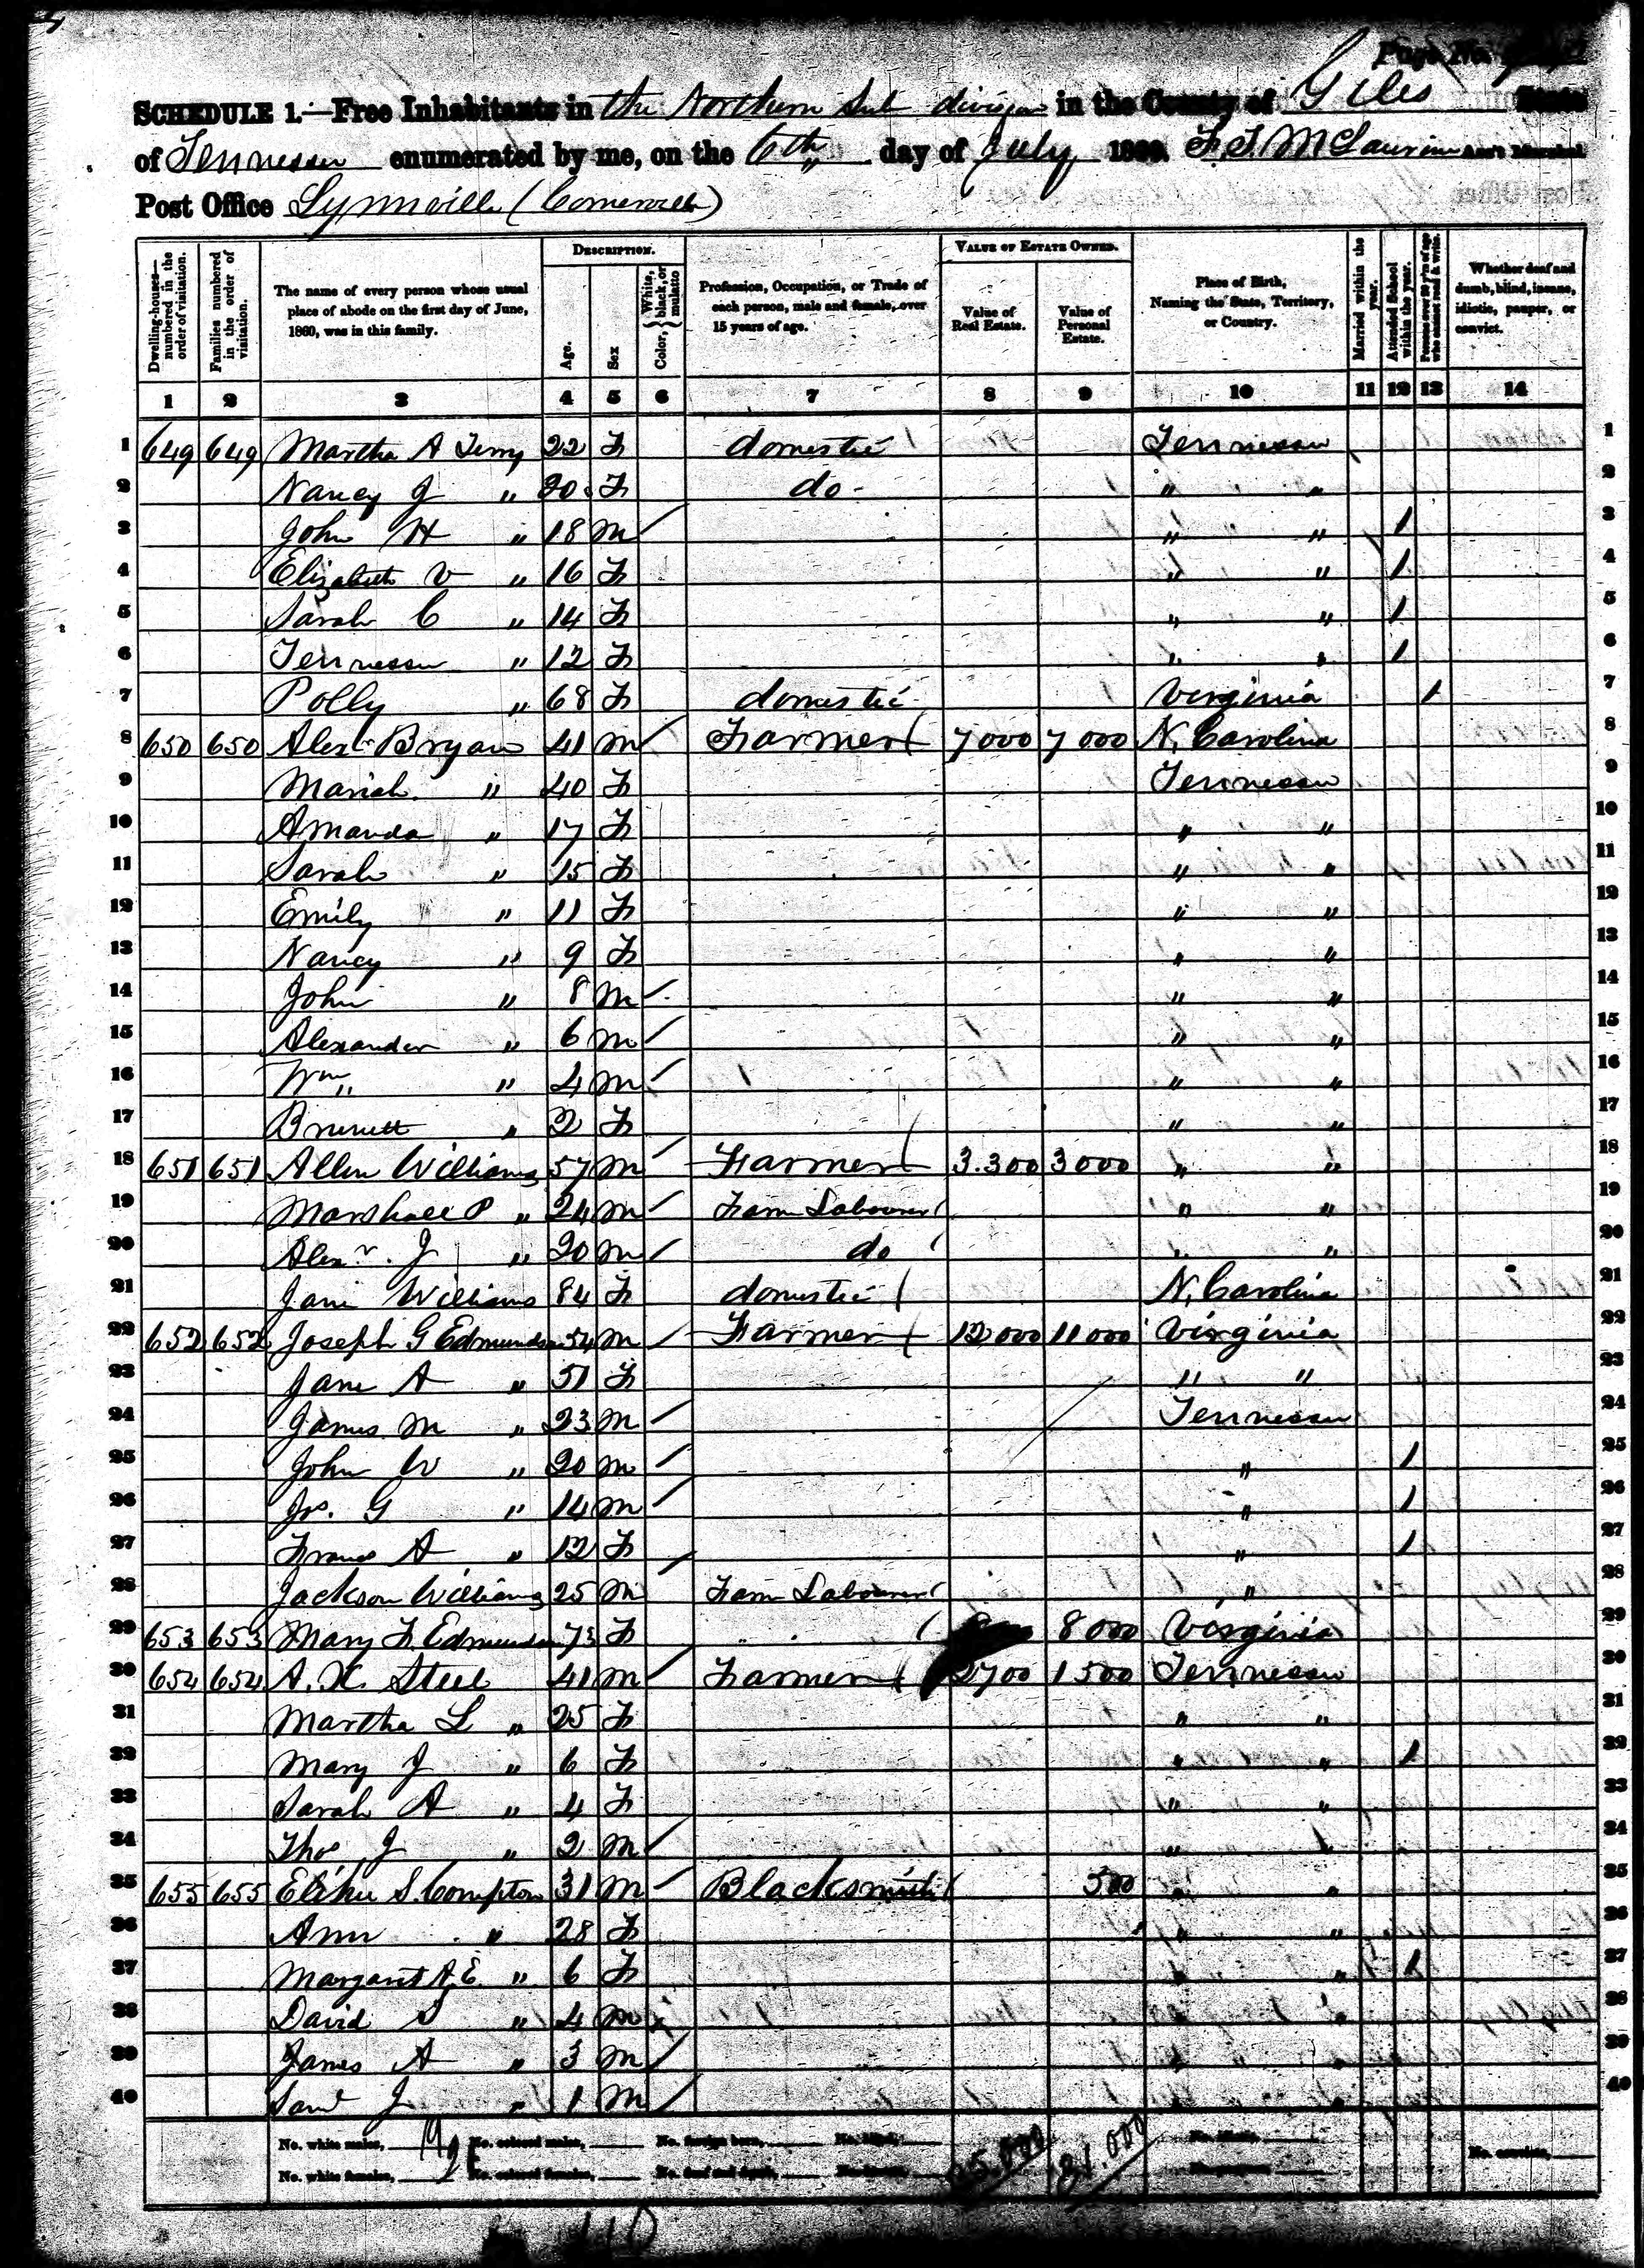 Page No.
SCHEDULE 1.—Free Inhabitants in the Northern Sub division in the County of Giles State
of Tennessee enumerated by me, on the 6th day of July 1860. Ass't Marshal
Post Office Lynnville
Dwelling-houses—numbered in the order of visitation.
Families numbered in the order of visitation.
The name of every person whose usual place of abode on the first day of June, 1860, was in this family.
DESCRIPTION.
Age.
Sex
Color, { White, black, or mulatto
Profession, Occupation, or Trade of each person, male and female, over 15 years of age.
VALUE OF ESTATE OWNED.
Value of Real Estate.
Value of Personal Estate.
Place of Birth, Naming the State, Territory, or Country.
Married within the year.
Attended School within the year.
Persons over 20 y'rs of age who cannot read & write.
Whether deaf and dumb, blind, insane, idiotic, pauper, or convict.
1 2 3 4 5 6 7 8 9 10 11 12 13 14
1 649 649 Martha A Terry 22 F domestic Tennessee 1
2 Nancy J " 20 F do " " 2
3 John H " 18 m " " 1 3
4 Elizabeth V " 16 F " " 1 4
5 Sarah C " 14 F " " 1 5
6 Tennessee " 12 F " " 1 6
7 Polly " 68 F domestic Virginia 1 7
8 650 650 Alexr Bryan 41 m Farmer 7000 7000 N. Carolina 8
9 Mariah " 40 F Tennessee 9
10 Amanda " 17 F " " 10
11 Sarah " 15 F " " 11
12 Emily " 11 F " " 12
13 Nancy " 9 F " " 13
14 John " 8 m " " 14
15 Alexander " 6 m " " 15
16 Wm " 4 m " " 16
17 " 2 F " " 17
18 651 651 Allen Williams 57 m Farmer 3.300 3000 " " 18
19 Marshall P " 24 m Farm Labourer " " 19
20 Alexr. J " 20 m do " " 20
21 Jane Williams 84 F domestic N. Carolina 21
22 652 652 Joseph G Edmundson 54 m Farmer 12000 11000 Virginia 22
23 Jane A " 51 F " " 23
24 James M " 23 m Tennessee 24
25 John W " 20 m " 1 25
26 Jos. G " 14 m " 1 26
27 Frances A " 12 F " 1 27
28 Jackson Williams 25 m Farm Labourer " 28
29 653 653 Mary F. Edmundson 73 F 8000 Virginia 29
30 654 654 A. K. Steel 41 m Farmer 2700 1500 Tennessee 30
31 Martha L " 25 F " " 31
32 Mary J " 6 F " " 1 32
33 Sarah A " 4 F " " 33
34 Thos J " 2 m " " 34
35 655 655 Elihu S. Compton 31 m Blacksmith 500 " " 35
36 Ann " 28 F " " 36
37 Margaret A. E. " 6 F " " 1 37
38 David S " 4 m " " 38
39 James A " 3 m " " 39
40 Saml J " 1 m " " 40
No. white males, 19 No. colored males, No. foreign born, No. blind, 25.000 31.000 No. idiotic,
No. white females, 21 No. colored females, No. deaf and dumb, No. insane, No. paupers, No. convicts,